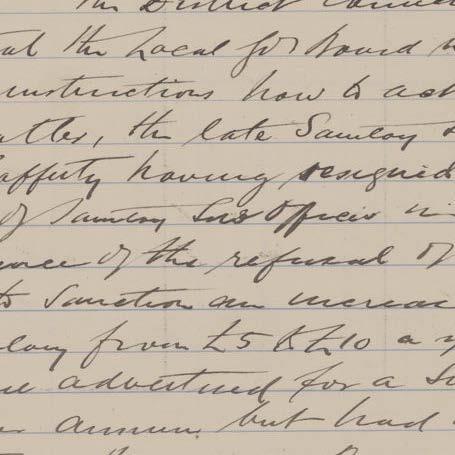 the District Counc
that the Local Gov Board
instructions how to act
atter, the late Sanitary
afferty having resigned
of Sanitary Sub Officer
ence of the refusal of
to Sanction an increas
alary from £5 to £10 a y
ve advertised for a S
er annum, but had